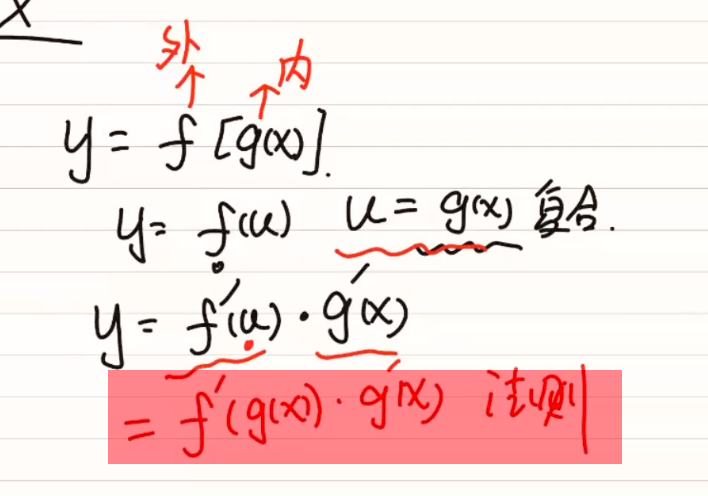 x
外 内
y = f [g(x)].
y = f(u) u = g(x) 复合.
y = f'(u) · g'(x)
= f'(g(x)) · g'(x) 法则